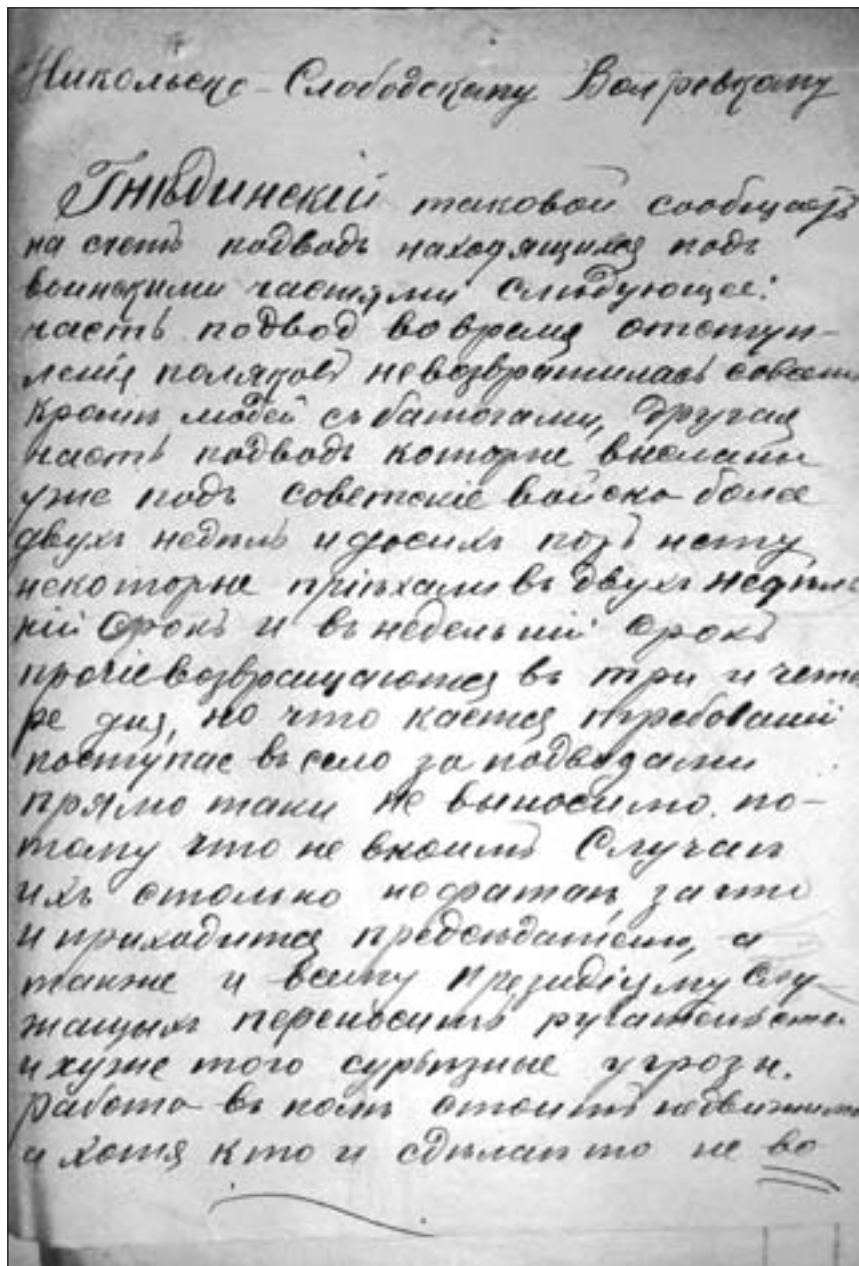 Никольско-Слободскому Волревкому
Гнѣдинскій таковой сообщаетъ
на счетъ подводъ находящихся подъ
воинскими частями слѣдующее:
часть подвод во время отступ-
ленія поляковъ невозвратилась совсемъ
кромѣ людей съ батогами, другая
часть подводъ которые висланы
уже подъ советскіе войска более
двухъ недѣль и досихъ поръ нету
некоторые пріѣхали въ двухъ недѣль
ній срокъ и въ недельній срокъ
прочіе возвращаются въ три и четы
ре дня, но что кается требованій
поступае въ село за подводами
прямо таки не выносимо. по-
тому что не вкоимъ случаѣ
ихъ столько нефатаѣ, за что
и приходится предсѣдателю, а
также и всему президіуму слу-
жащихъ переносить ругательства
и хуже того сурьезные угрозы.
работа въ полѣ стоитъ недвижимо
а хотя кто и сдѣлаѣ то не во